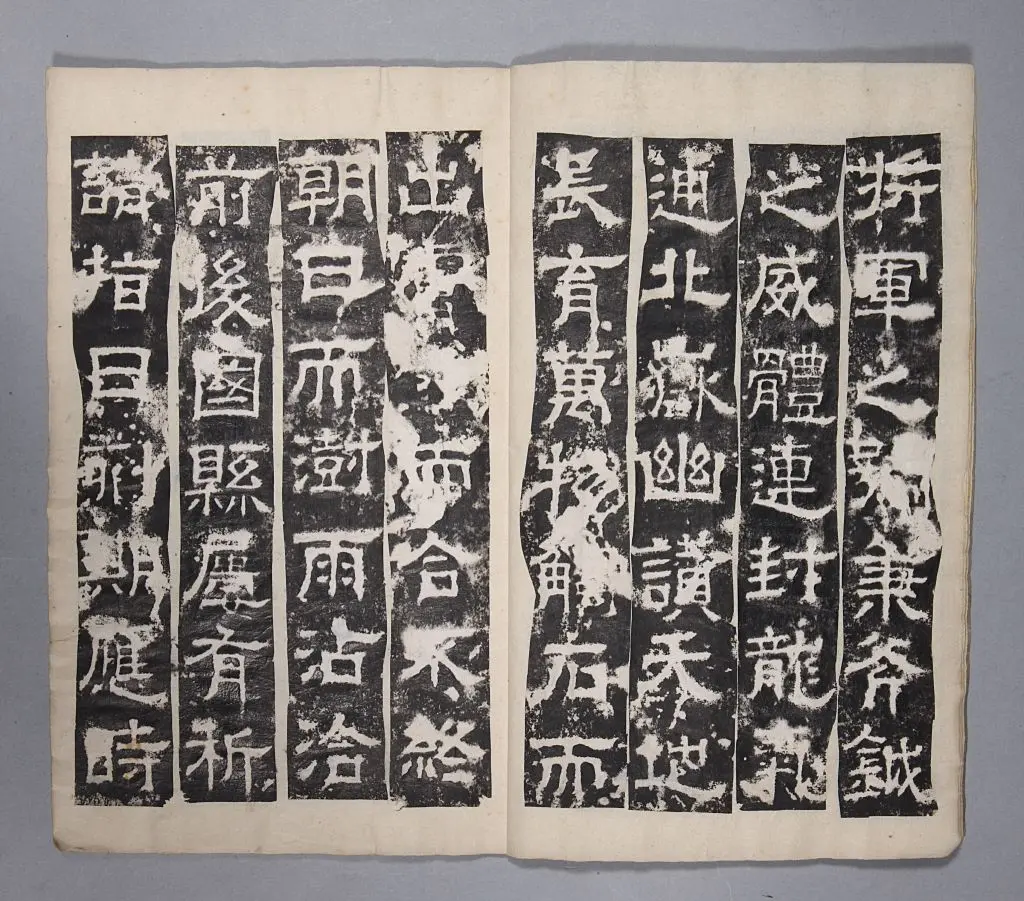 將軍之號秉斧鉞
之威體連封龍氣
通北嶽幽讚天地
長育萬物觸石而
出膚而合不終
朝日而澍雨沾洽
前後國縣屢有祈
請指日刻期應時